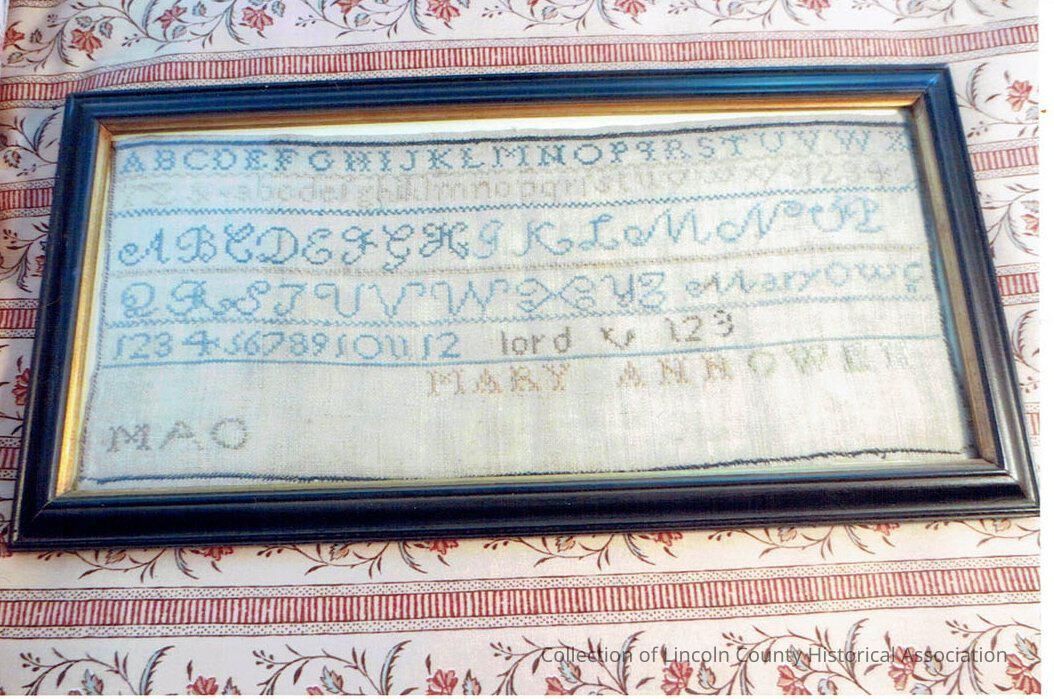 A B C D E F G H I J K L M N O P q R S T U V W X
Y Z & a b c d e f g h i k l m n o p q r s t u v w x y z 1 2 3 4
A B C D E F G H I K L M N O P
Q R S T U V W X Y Z Mary Owe
1 2 3 4 5 6 7 8 9 10 11 12 lord 1 2 3
MARY ANN OWEN
MAO
Collection of Lincoln County Historical Association